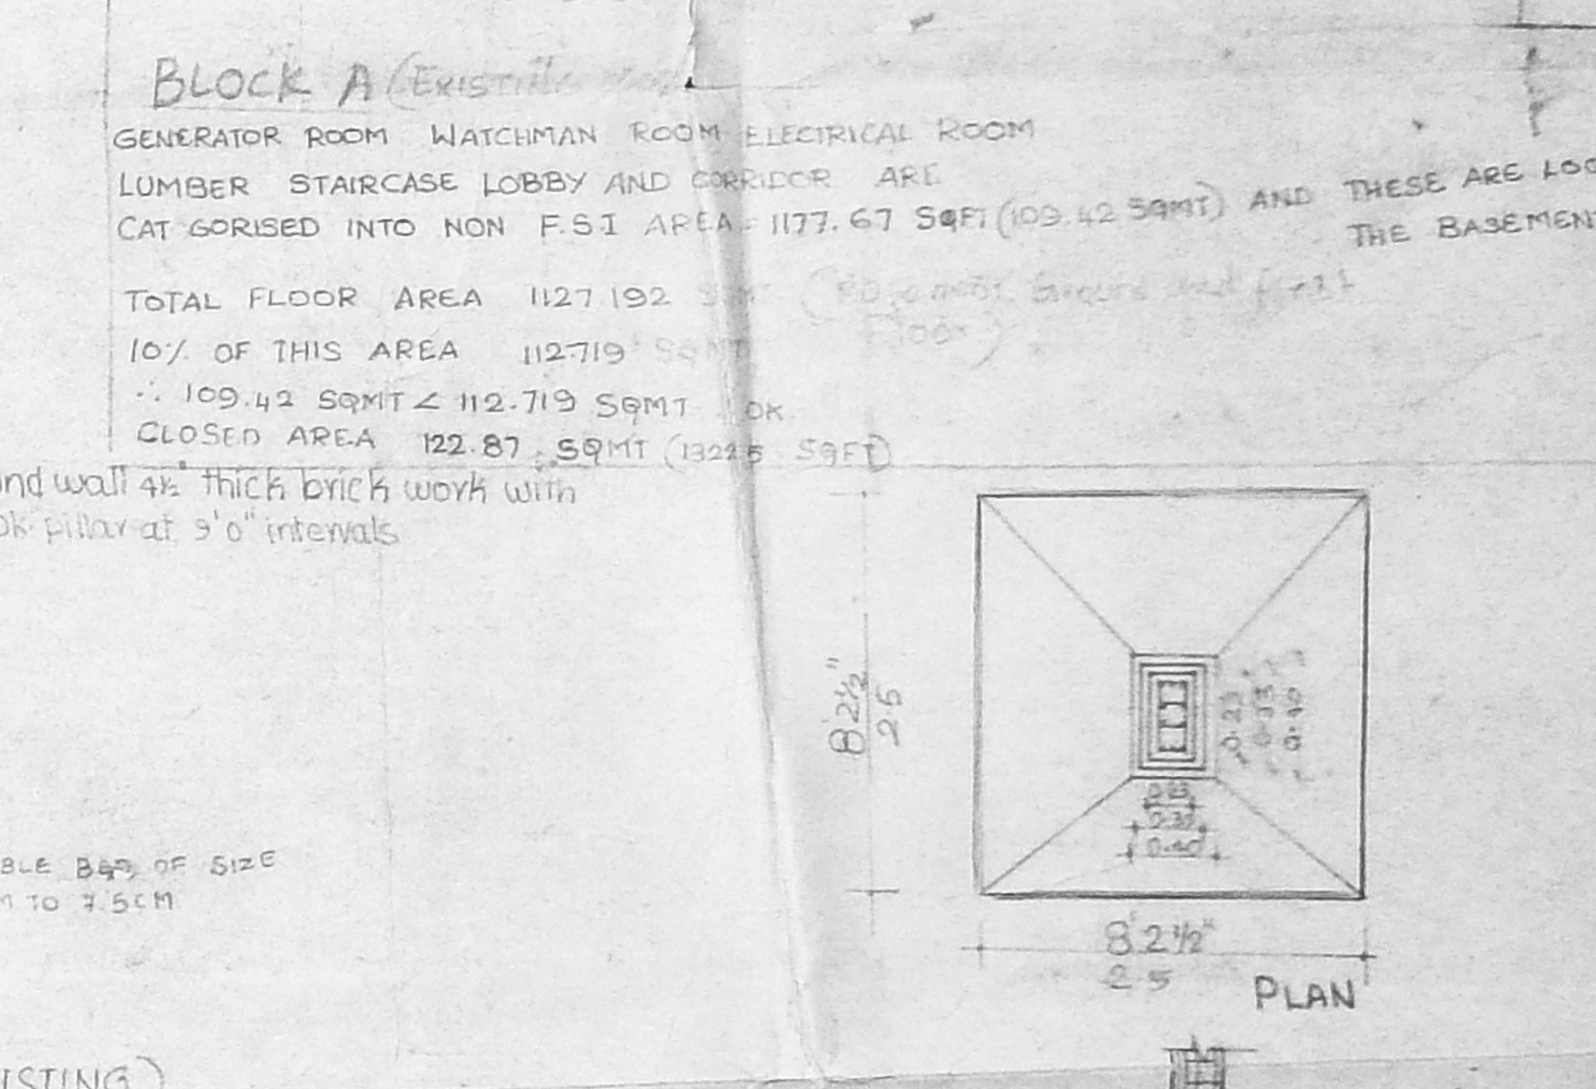 BLOCK A (EXISTING
GENERATOR ROOM WATCHMAN ROOM ELECTRICAL ROOM
LUMBER STAIRCASE LOBBY AND CORRIDOR ARE
CAT GORISED INTO NON F.S.I AREA = 1177.67 SQFT (109.42 SQMT) AND THESE ARE LOC
THE BASEMENT
TOTAL FLOOR AREA 1127.192
10% OF THIS AREA 112.719 SQMT
∴ 109.42 SQMT < 112.719 SQMT OK
CLOSED AREA 122.87 SQMT (1322.5 SQFT)
und wall 4½" thick brick work with
pillar at 9'0" intervals
8'2½"
2.5
0.23
0.40
0.23
0.40
8'2½"
2.5
PLAN
BLE OF SIZE
M TO 7.5CM
ISTING)